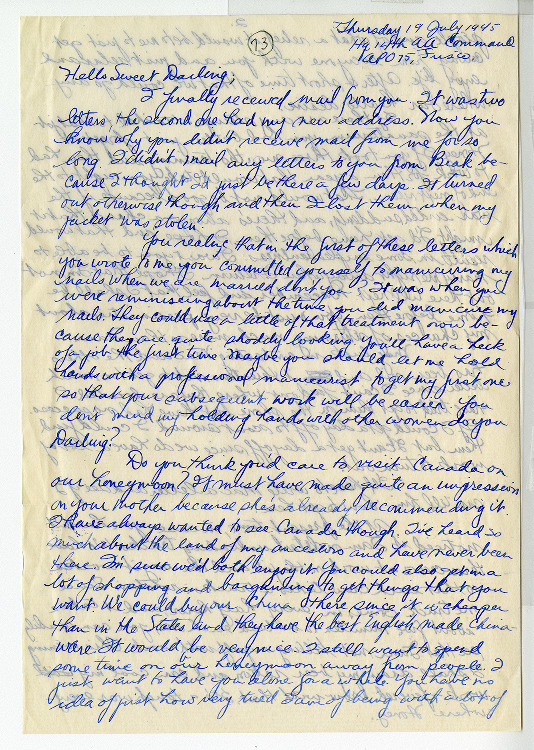 Thursday 19 July 1945
73
Hq 14th AA Command
APO 75, Frisco
Hello Sweet Darling;
I finally received mail from you. It was two
letters, the second one had my new address. Now you
know why you didn't receive mail from me for so
long. I didn't mail any letters to you from Biak be-
cause I thought I'd just be there a few days. It turned
out otherwise though and then I lost them when my
jacket was stolen.
You realize that in the first of these letters which
you wrote to me you committed yourself to manicuring my
nails when we are married don't you? It was when you
were reminiscing about the time you did manicure my
nails. They could use a little of that treatment now be-
cause they are quite shoddy looking. You'll have a heck
of a job the first time. Maybe you should let me hold
hands with a professional manicurist to get my first one
so that your subsequent work will be easier. You
don't mind my holding hands with other women do you
Darling?
Do you think you'd care to visit Canada on
our honeymoon? It must have made quite an impression
on your mother because she's already recommending it.
I have always wanted to see Canada though. I've heard so
much about the land of my ancestors and have never been
there. I'm sure we'd both enjoy it. You could also get in a
lot of shopping and bargaining to get things that you
want. We could buy our China there since it is cheaper
than in the States and they have the best English made China-
ware. It would be very nice. I still want to spend
some time on our honeymoon away from people. I
just want to have you alone for a while. You have no
idea of just how very tired I am of being with a lot of